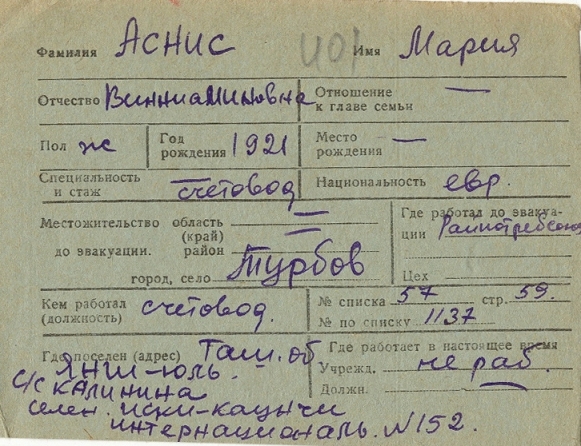 Фамилия Аснис 401 Имя Мария
Отчество Винниаминовна Отношение к главе семьи —
Пол ж Год рождения 1921 Место рождения —
Специальность и стаж счетовод Национальность евр.
Местожительство область (край) —
до эвакуации. район —
город, село Турбов
Где работал до эвакуации Райпотребсоюз
Цех
Кем работал (должность) счетовод.
№ списка 57 стр. 59.
№ по списку 1137
Где поселен (адрес) Таш. об
Янги-юль.
с/с Калинина
селен. иски-каунчи
интернациональ. N152.
Где работает в настоящее время
Учрежд. не раб.
Должн. —